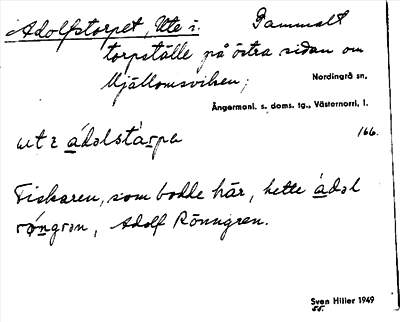 Adolfstorpet, Ute i. Gammalt
torpställe på östra sidan om
Mjällomsviken; Nordingrå sn,
Ångermanl. s. doms. tg., Västernorrl. l.
ut ɪ ádəlstàrpə 166.
Fiskaren, som bodde här, hette ádəl
róngrən, Adolf Rönngren.
Sven Hiller 1949